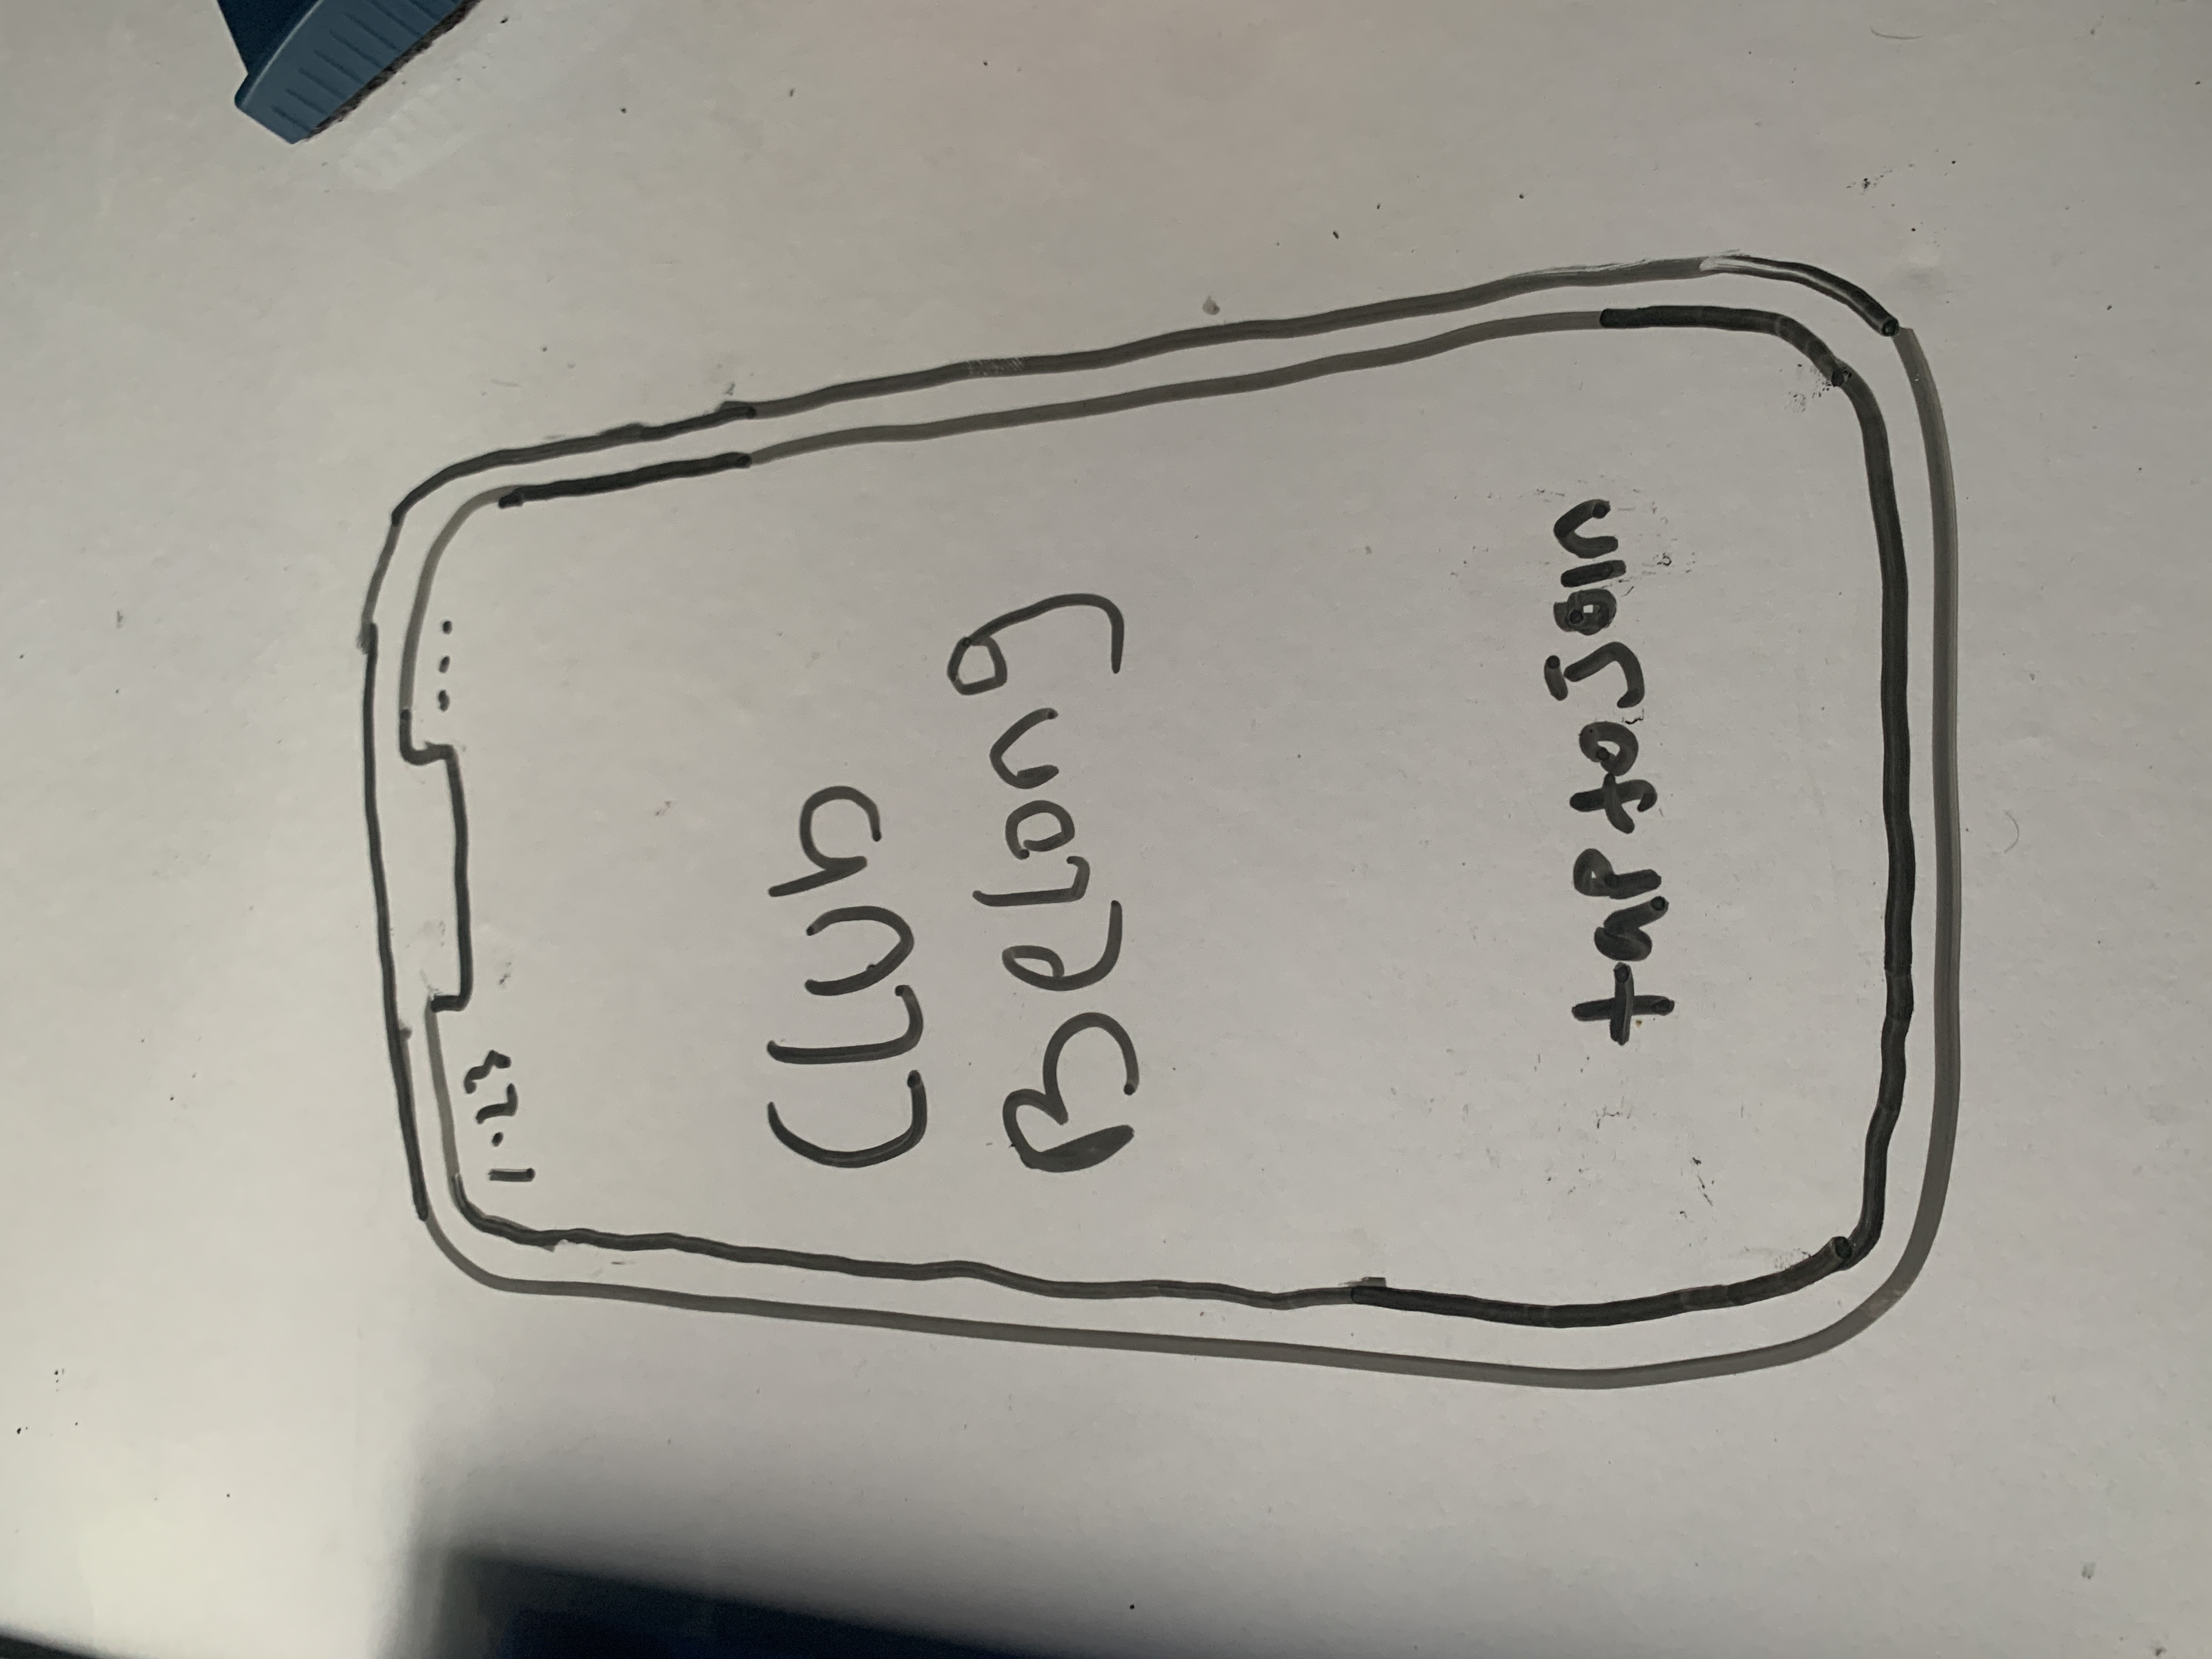 1.23 ...
Club
Belong
tap to join